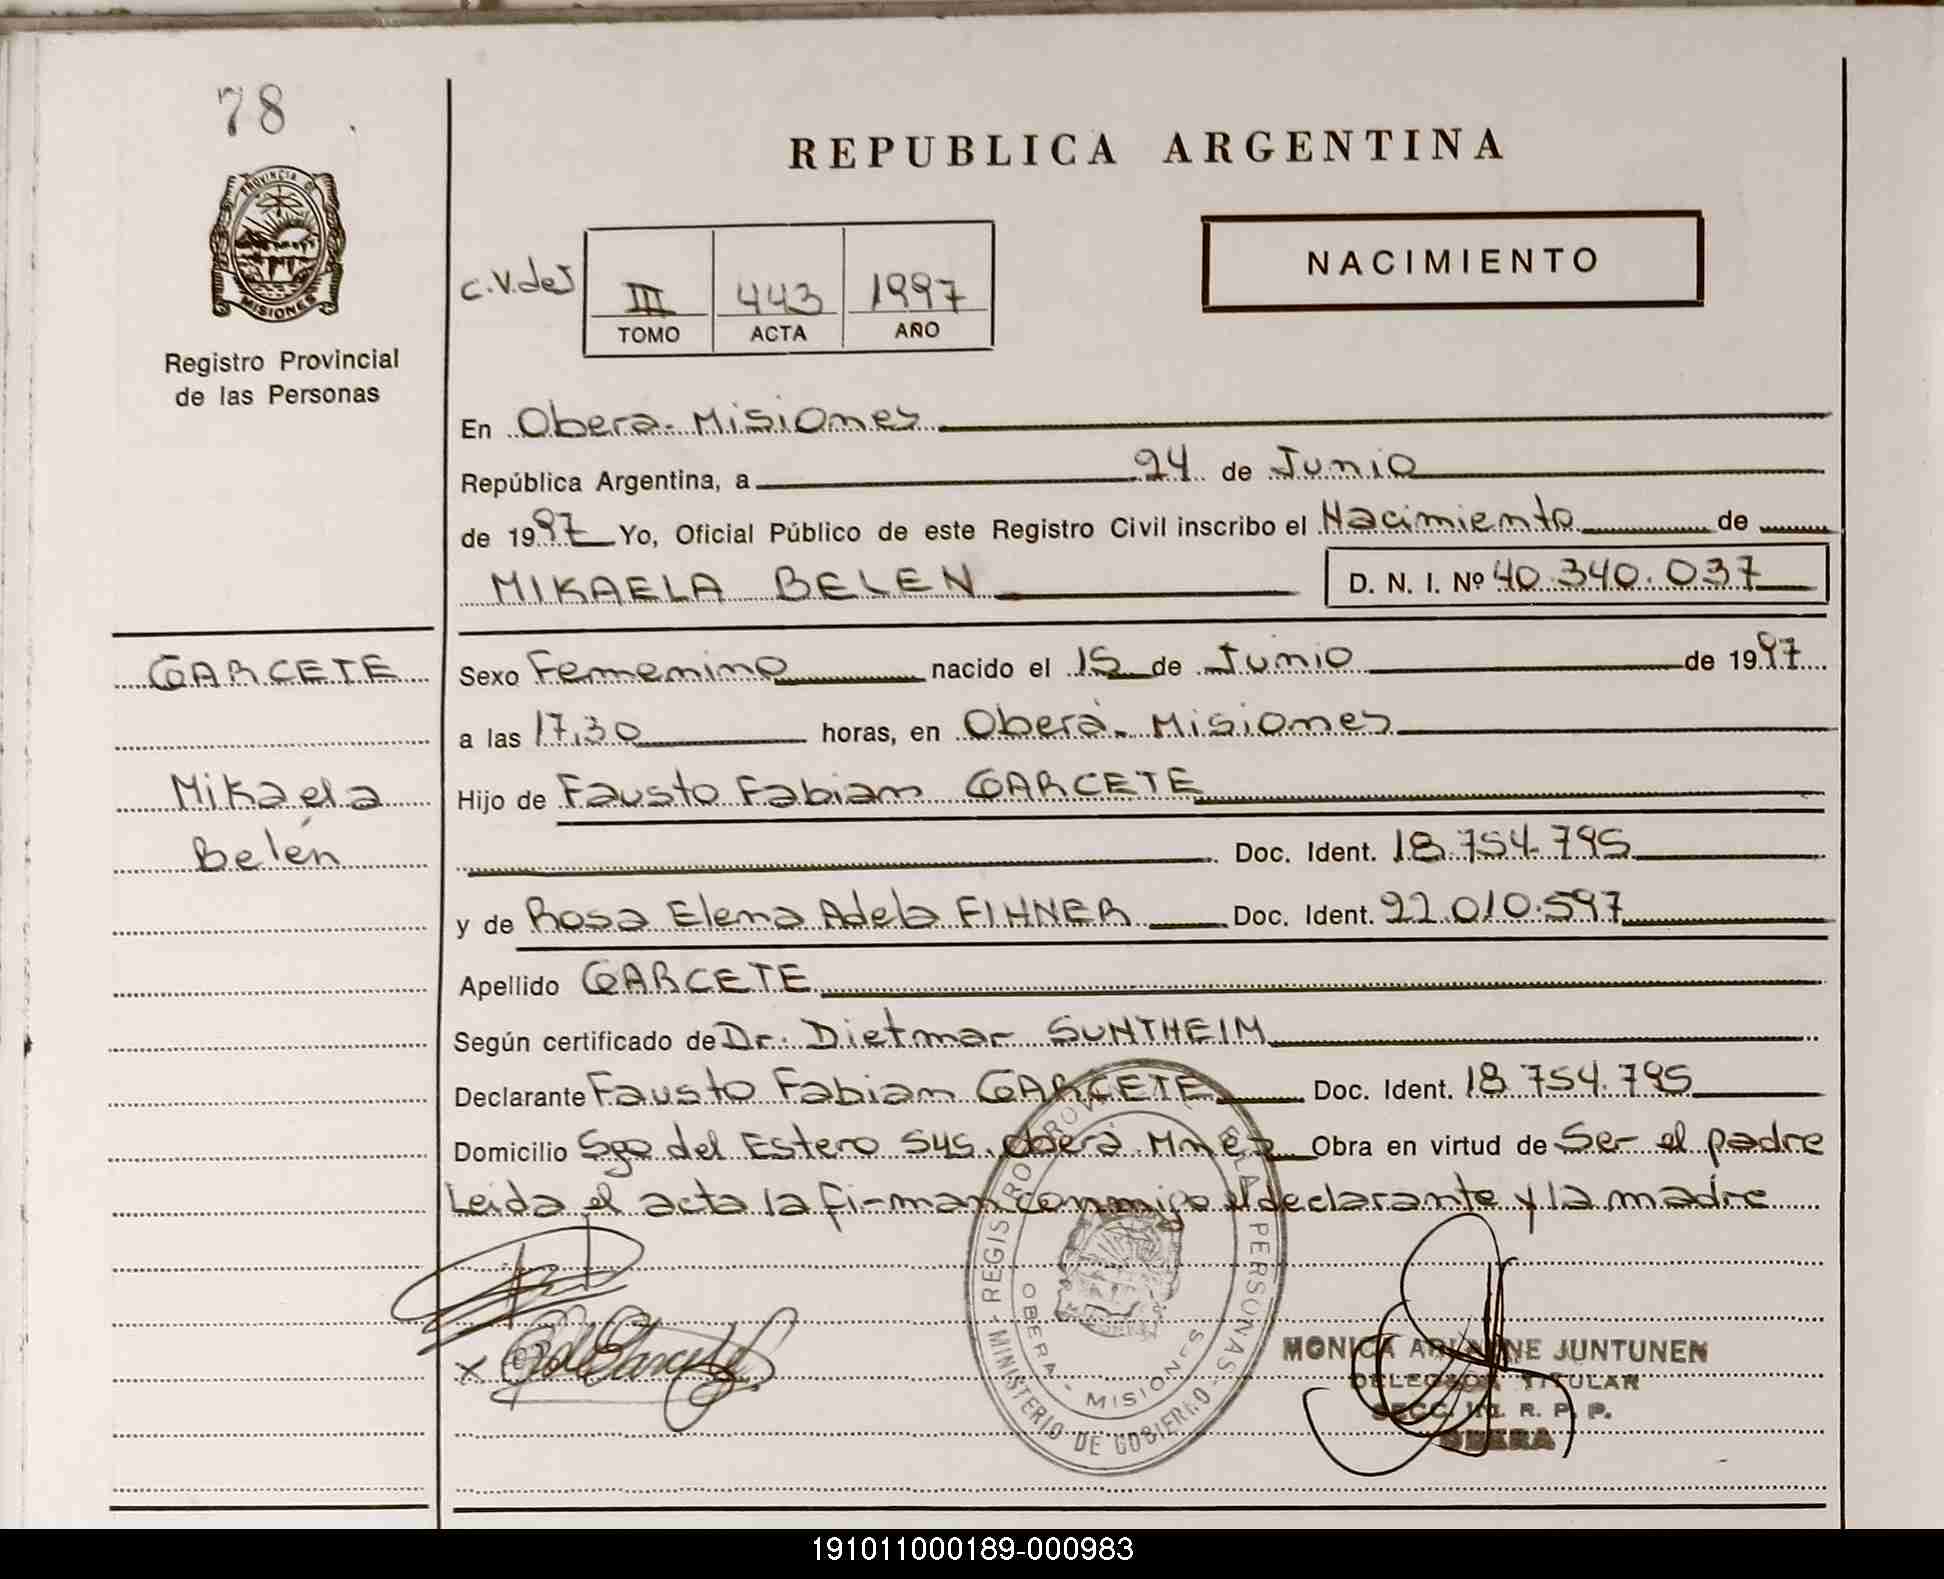 78
PROVINCIA DE
MISIONES
Registro Provincial
de las Personas
REPUBLICA ARGENTINA
NACIMIENTO
C.V.deJ
III 443 1997
TOMO ACTA AÑO
En Obera - Misiones
República Argentina, a 24 de Junio
de 1997 Yo, Oficial Público de este Registro Civil inscribo el Nacimiento de
MIKAELA BELEN D. N. I. Nº 40.340.037
GARCETE
Mikaela
Belén
Sexo Femenino nacido el 15 de Junio de 1997
a las 17,30 horas, en Oberá - Misiones
Hijo de Fausto Fabian GARCETE
Doc. Ident. 18.754.795
y de Rosa Elena Adela FIHNER Doc. Ident. 22.010.597
Apellido GARCETE
Según certificado de Dr. Dietmar SUNTHEIM
Declarante Fausto Fabian GARCETE Doc. Ident. 18.754.795
Domicilio Sgo del Estero 545. Oberá Mnes Obra en virtud de Ser el padre
Leida el acta la firman conmigo el declarante y la madre
REGISTRO PERSONAS
MINISTERIO DE GOBIERNO
OBERA - MISIONES
X
MONICA JUNTUNEN
DELEGADA TITULAR
SECC. R. P. P.
OBERA
191011000189-000983